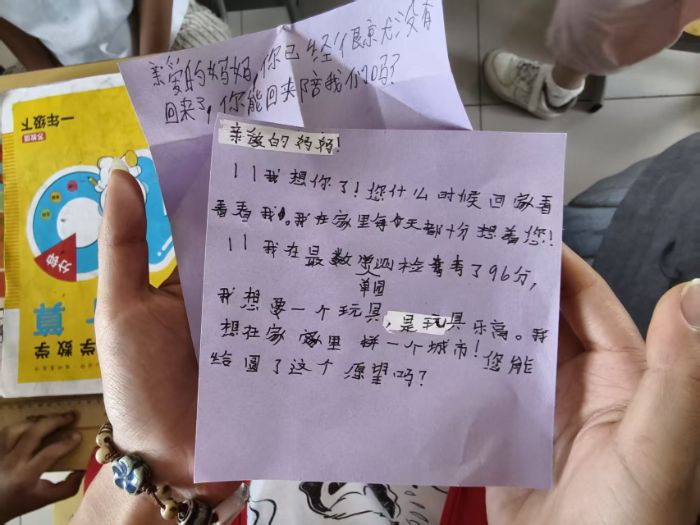 亲爱的妈妈,你已经很久没有
回来了,你能回来陪我们吗?
亲爱的妈妈!
我想你了!您什么时候回家看
看看我。我在家里每天都十分想着您!
我在最数学 检 考了96分,
单圆
我想要一个玩具,是玩具乐高。我
想在家 家里拼一个城市!您能
给圆了这个愿望吗?
一年级下
苏教版
分钟
算
学数学